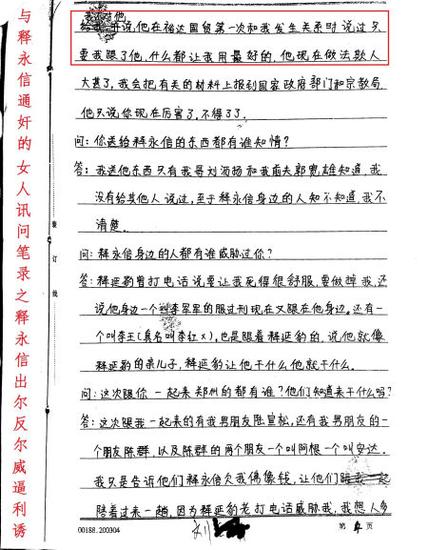 与释永信通奸的女人讯问笔录之释永信出尔反尔威逼利诱
他
说，他在裕达国贸第一次和我发生关系时说过只
要我跟了他，什么都让我用最好的，他现在做法欺人
太甚了，我会把有关的材料上报到国家政府部门和宗教局，
他只说你现在厉害了，不得了了。
问：你送给释永信的东西都有谁知情？
答：我送他东西只有我哥刘海扬和我前夫郭宽雄知道，我
没有给其他人说过，至于释永信身边的人知不知道，我不
清楚。
问：释永信身边的人都有谁威胁过你？
答：释延豹曾打电话说要让我死得很舒服，要做掉我，还
说他身边一个李军军的服过刑现在又跟在他身边。还有一
个叫李王（真名叫李红X），也是跟着释延豹的，说他就像
释延豹的亲儿子，释延豹让他干什么他就干什么。
问：这次跟你一起来郑州的都有谁？他们知道来干什么吗？
答：这次跟我一起来的有我男朋友陆宣松，还有我男朋友的一
个朋友陈群，以及陈群的两个朋友一个叫阿根一个叫安达，
我只是告诉他们释永信欠我佛像钱，让他们一起
陪着过来一趟，因为释延豹老打电话威胁我，我想人多
装订线
00188.200304
第 页